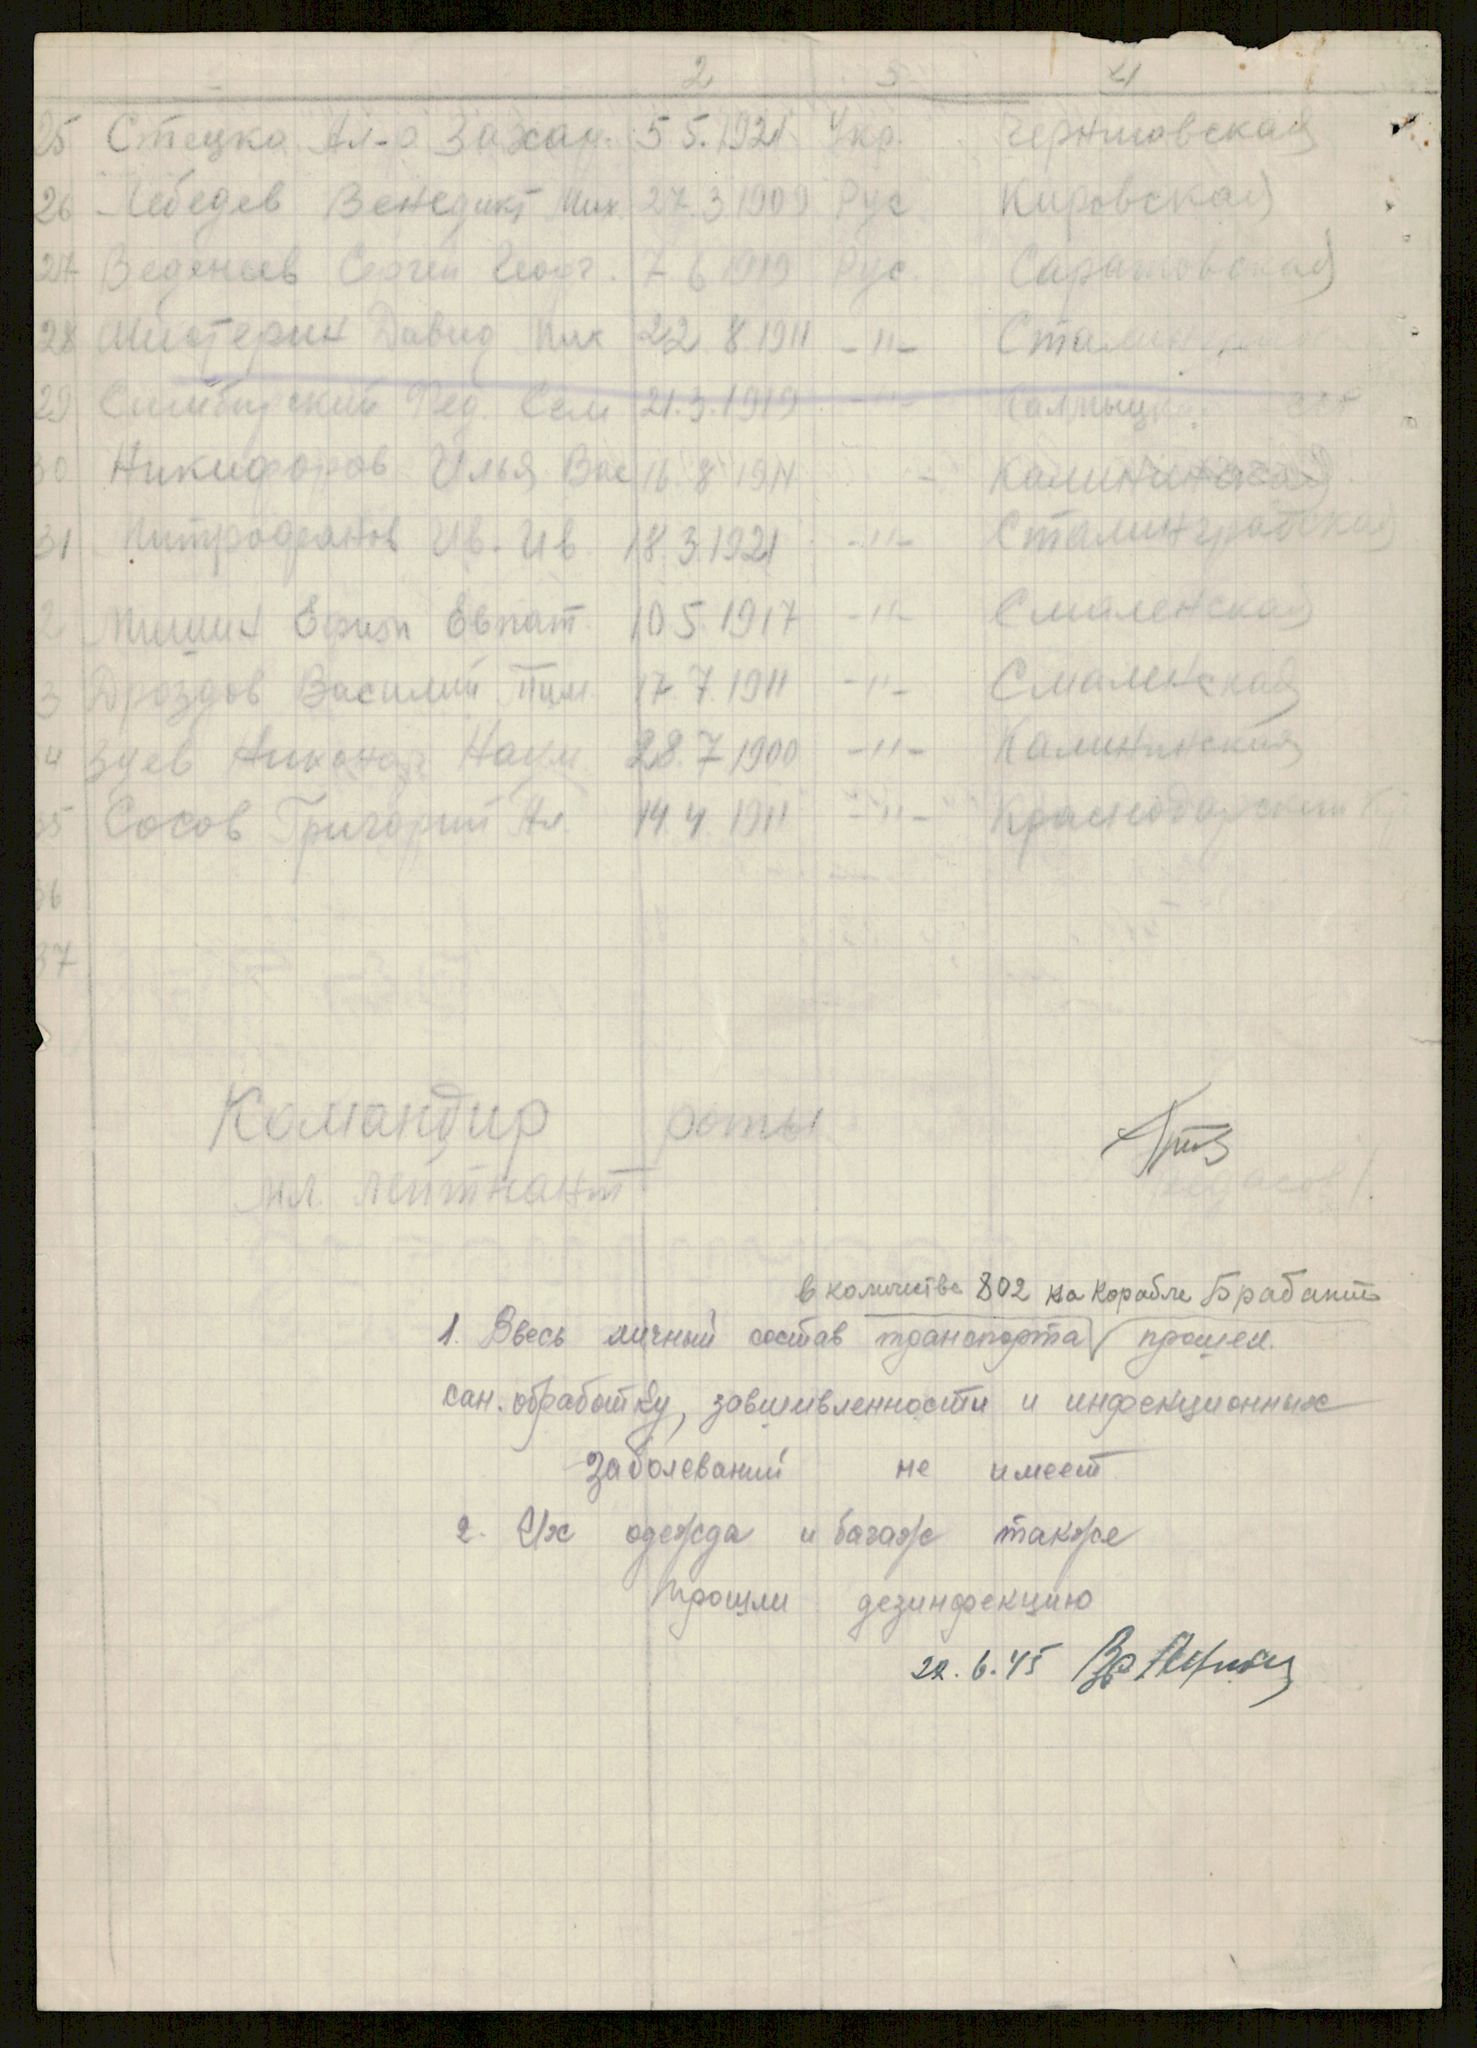 2 3 4
25 Стецко Ал-р Захар. 5.5.1921 Укр. Черниговская
26 Лебедев Венедикт Мих. 27.3.1909 Рус. Кировская
27 Веденьев Сергей Георг. 7.6.1919 Рус. Саратовская
28 Давид 22.8.1911 -"-
29 Симбирский Фед. Сем 21.3.1919 -"-
30 Никифоров Илья Вас 16.8.1911 Калининская
31 Митрофанов Ив. Ив. 18.3.1921 -"- Сталинградская
2 Мишин Ефим Евпат. 10.5.1917 -"- Смаленская
3 Дроздов Василий Тим. 17.7.1911 -"- Смаленская
4 Зуев Никонор Наум. 28.7.1900 -"- Калининская
35 Сосов Григорий Ал. 14.4.1911 -"- Краснодарский кр
36
37
Командир роты
мл. лейтнант
в количестве 802 на корабле Брабант
1. Ввесь личный состав транспорта прошел
сан. обработку, завшивленности и инфекционных
заболеваний не имеет
2. Их одежда и багаж также
прошли дезинфекцию
22.6.45